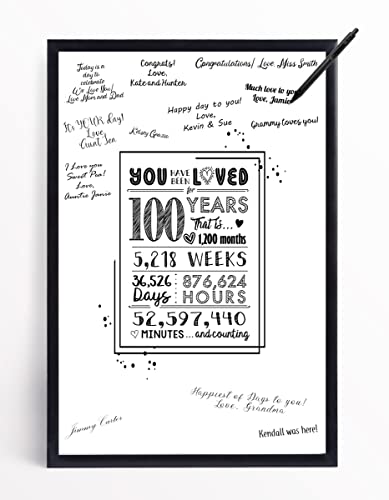 Today is a
day to
celebrate
We Love You!
Love Mom and Dad
Congrats!
Love,
Kate and Hunter
Congratulations! Love Miss Smith
Much love to you
Love, Jamie
Happy day to you!
Love,
Kevin & Sue
Grammy Loves you!
It's YOUR day!
Love
Aunt Jen
Kasey Grace
I Love you
Sweet Pea!
Love,
Auntie Janie
YOU HAVE BEEN LOVED
for
100 YEARS
That is...
1,200 months
5,218 WEEKS
36,526 Days
876,624 HOURS
52,597,440
MINUTES...and counting
Happiest of Days to you!
Love, Grandma
Jimmy Carter
Kendall was here!